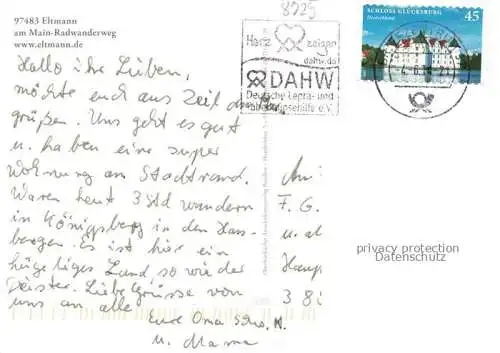 97483 Eltmann
am Main-Radwanderweg
www.eltmann.de
Hallo ihr Lieben,
möchte euch aus Zeil
grüßen. Uns geht es gut
u. haben eine super
Wohnung am Stadtrand.
Waren heut 3 Std wandern
in Königsberg in den Hass-
bergen. Es ist hier ein
hügeliges Land so wie der
Deister. Liebe Grüsse von
uns an alle
Eure Oma
u. Mama
8225
Herz zeigen
dahw.de
DAHW
Deutsche Lepra- und
Tuberkulosehilfe e.V.
SCHLOSS GLÜCKSBURG
Deutschland
45
F. G.
u. al
Haup
3 8
privacy protection
Datenschutz